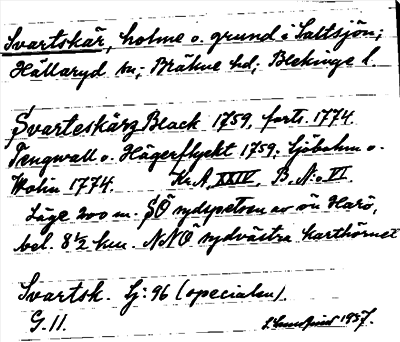 Svartskär, holme o. grund i Saltsjön;
Hällaryd sn; Bräkne hd; Blekinge l.
Svarteskärz Black 1759, forts. 1774.
Tengwall o. Hägerflyckt 1759; Sjöbohm o.
Wolin 1774. Kr.A, XXIV, B, N:o VI.
Läge 200 m. SÖ sydspetsen av ön Harö,
bel. 8 1/2 km. NNÖ sydvästra karthörnet
Svartsk. Lj: 96 (specialen).
G. 11. 1957.